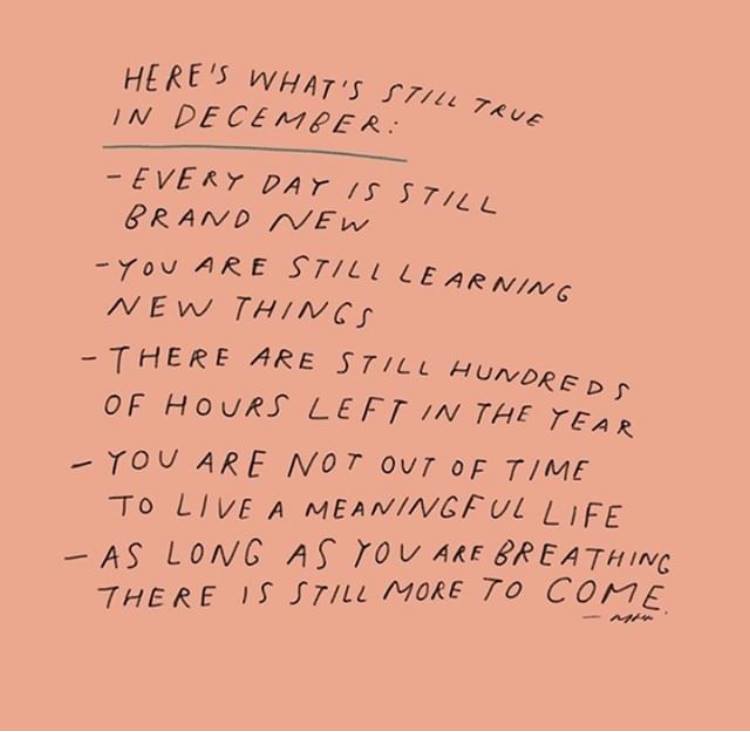 HERE'S WHAT'S STILL TRUE
IN DECEMBER:
- EVERY DAY IS STILL
BRAND NEW
- YOU ARE STILL LEARNING
NEW THINGS
- THERE ARE STILL HUNDREDS
OF HOURS LEFT IN THE YEAR
- YOU ARE NOT OUT OF TIME
TO LIVE A MEANINGFUL LIFE
- AS LONG AS YOU ARE BREATHING
THERE IS STILL MORE TO COME.